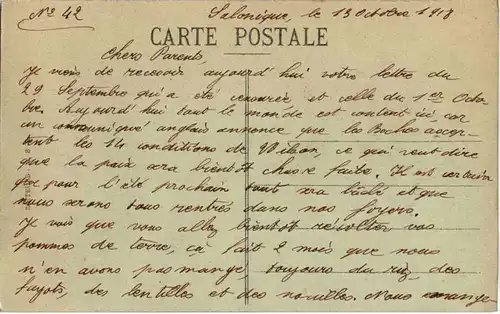 N° 42
Salonique, le 13 Octobre 1918
CARTE POSTALE
Chers Parents
Je viens de recevoir aujourd'hui votre lettre du
29 Septembre qui a été censurée, et celle du 1er Octo-
bre. Aujourd'hui tout le monde est content ici car
un communiqué anglais annonce que les Boches accep-
tent les 14 conditions de Wilson, ce qui veut dire
que la paix sera bientôt chose faite. Il est certain
que pour l'été prochain tout sera tassé et que
nous serons tous rentrés dans nos foyers.
Je vois que vous allez bientôt récolter vos
pommes de terre, ça fait 2 mois que nous
n'en avons pas mangé toujours du riz, des
fayots, des lentilles et des nouilles. Nous mange